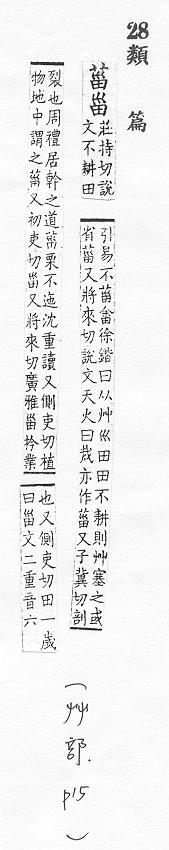 28 類篇
葘甾
莊持切說
文不耕田
引易不葘畬徐鍇曰从艸巛田田不耕則艸塞之或
省葘又將來切說文天火曰烖亦作葘又子冀切剖
裂也周禮居幹之道葘栗不迆沈重讀又側吏切植
物地中謂之葘又初吏切甾又將來切廣雅甾拎業
也又側吏切田一歲
曰甾文二重音六
(艸部. p15)